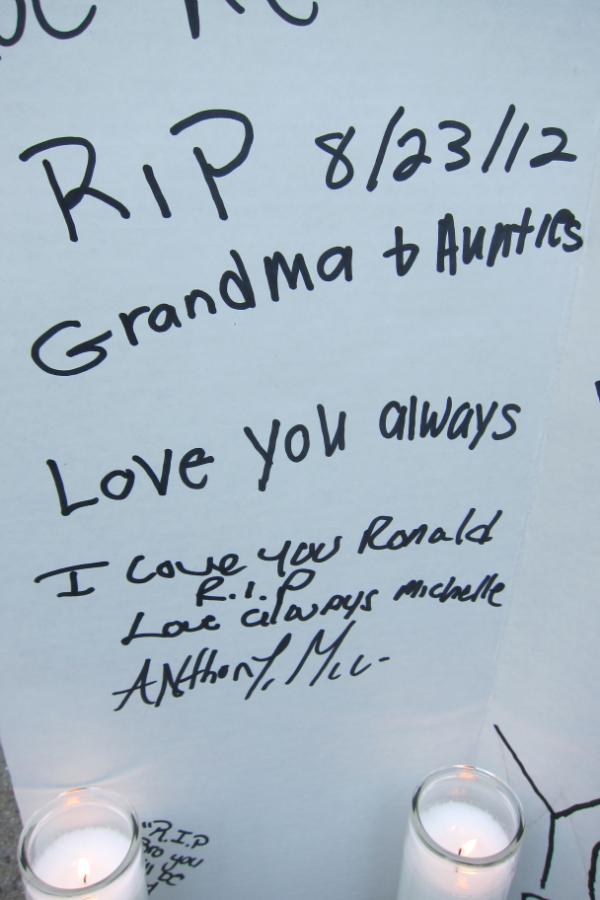 RIP 8/23/12
Grandma & Aunties
Love you always
I Love you Ronald
R.I.P
Love always Michelle
Anthony,
"R.I.P
Bro you